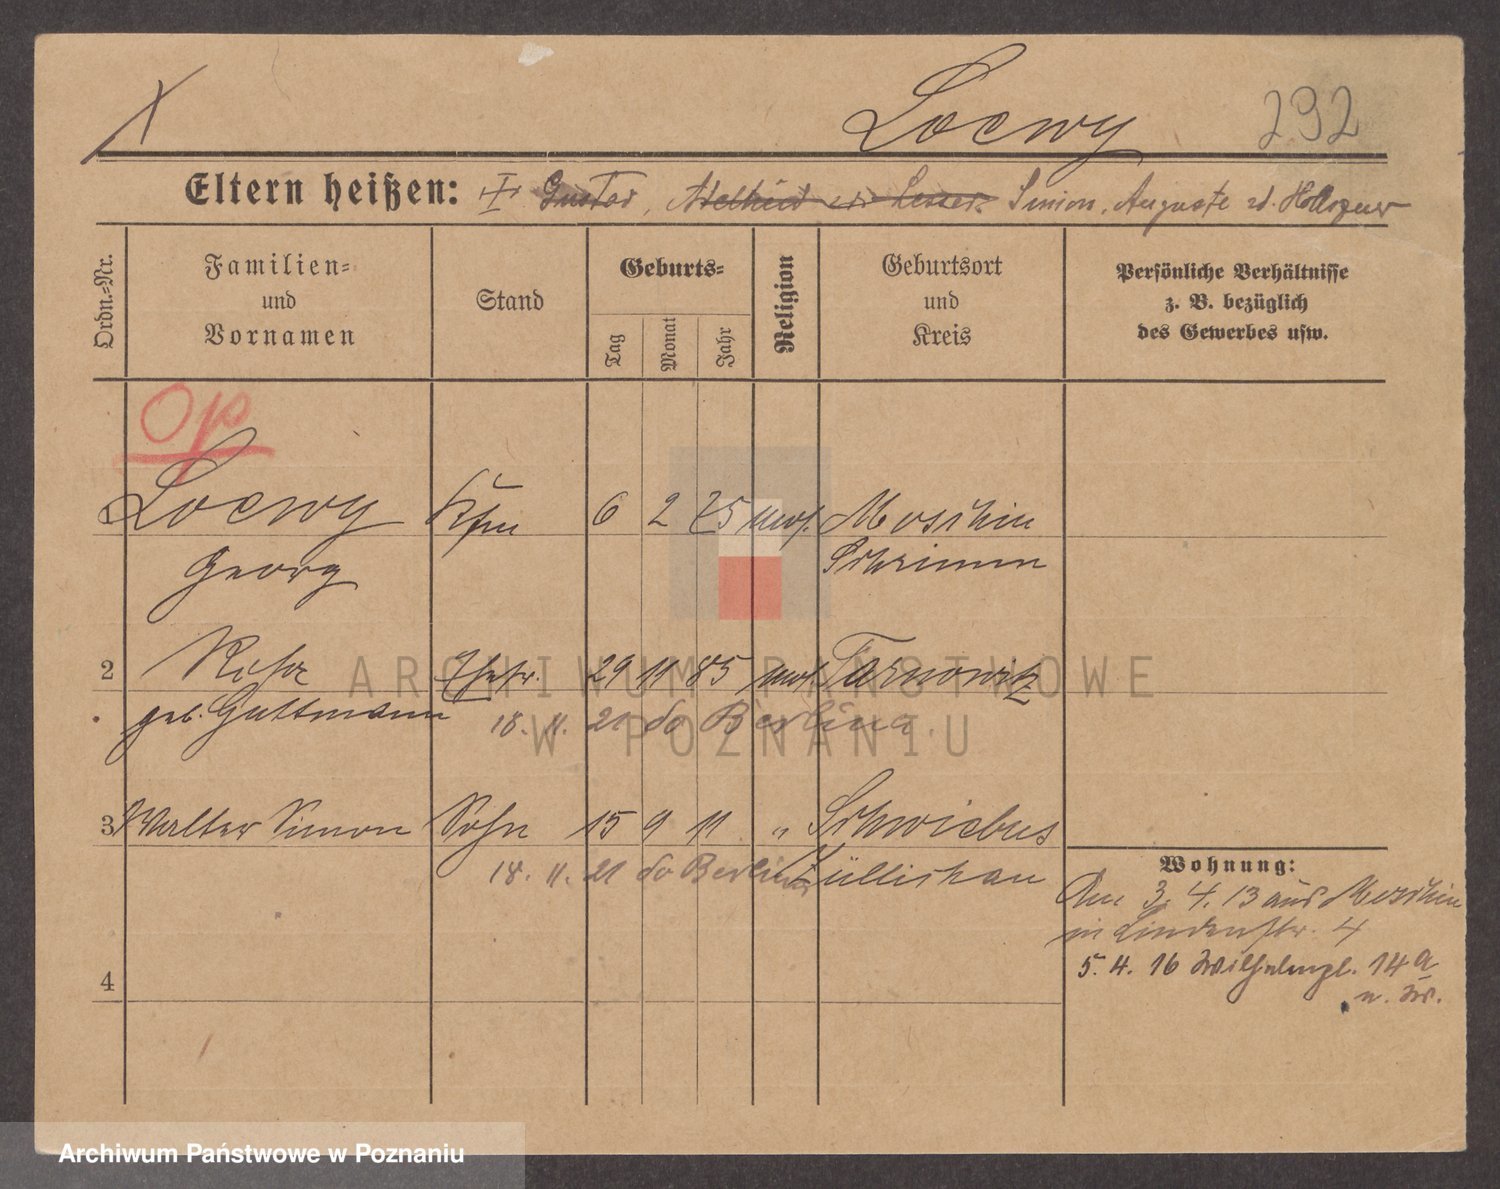 Loewy 292
Eltern heißen: I Gustav, Simon, Auguste
Ordn.=Nr.
Familien=
und
Vornamen
Stand
Geburts=
Tag
Monat
Jahr
Religion
Geburtsort
und
Kreis
Persönliche Verhältnisse
z. B. bezüglich
des Gewerbes usw.
Op
Loewy Kfm 6 2 75 mos. Moschin
Georg Schrimm
2 Ehefr. 29 11 85 mos. Tarnowitz
geb. Guttmann 18. 11. 21 do Berlin
3 Walter Simon Sohn 15 9 11 " Schwiebus
18. 11. 21 do Berlin Züllichau
4
Wohnung:
Am 3. 4. 13 aus Moschin
in Lindenstr. 4
5. 4. 16 Wilhelmpl. 14a
ARCHIWUM PAŃSTWOWE
W POZNANIU
Archiwum Państwowe w Poznaniu